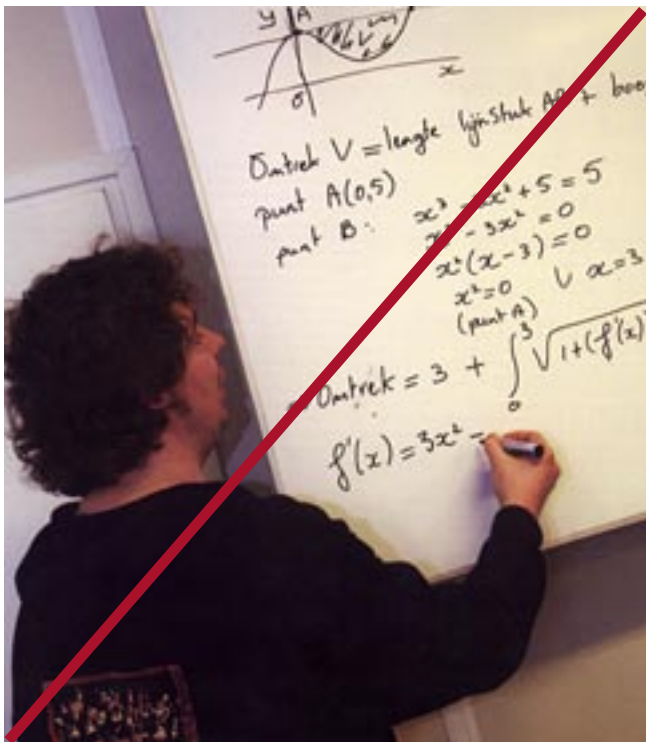 y A
x
0
Omtrek V = lengte lijnstuk AB + boo
punt A(0,5)
punt B: x³ - 3x² + 5 = 5
x³ - 3x² = 0
x²(x-3) = 0
x² = 0 ∨ x = 3
(punt A)
Omtrek = 3 + ∫₀³ √1+(f'(x)
f'(x) = 3x² -